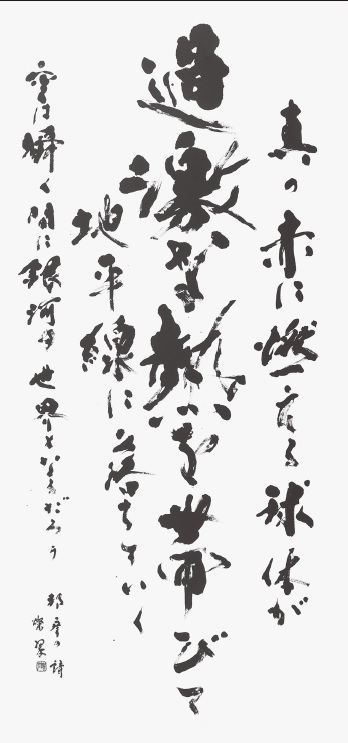 真の赤に燃える球体が
過激な熱を帯びて
地平線に落ちていく
空は瞬く間に銀河の世界となるだろう
の詩